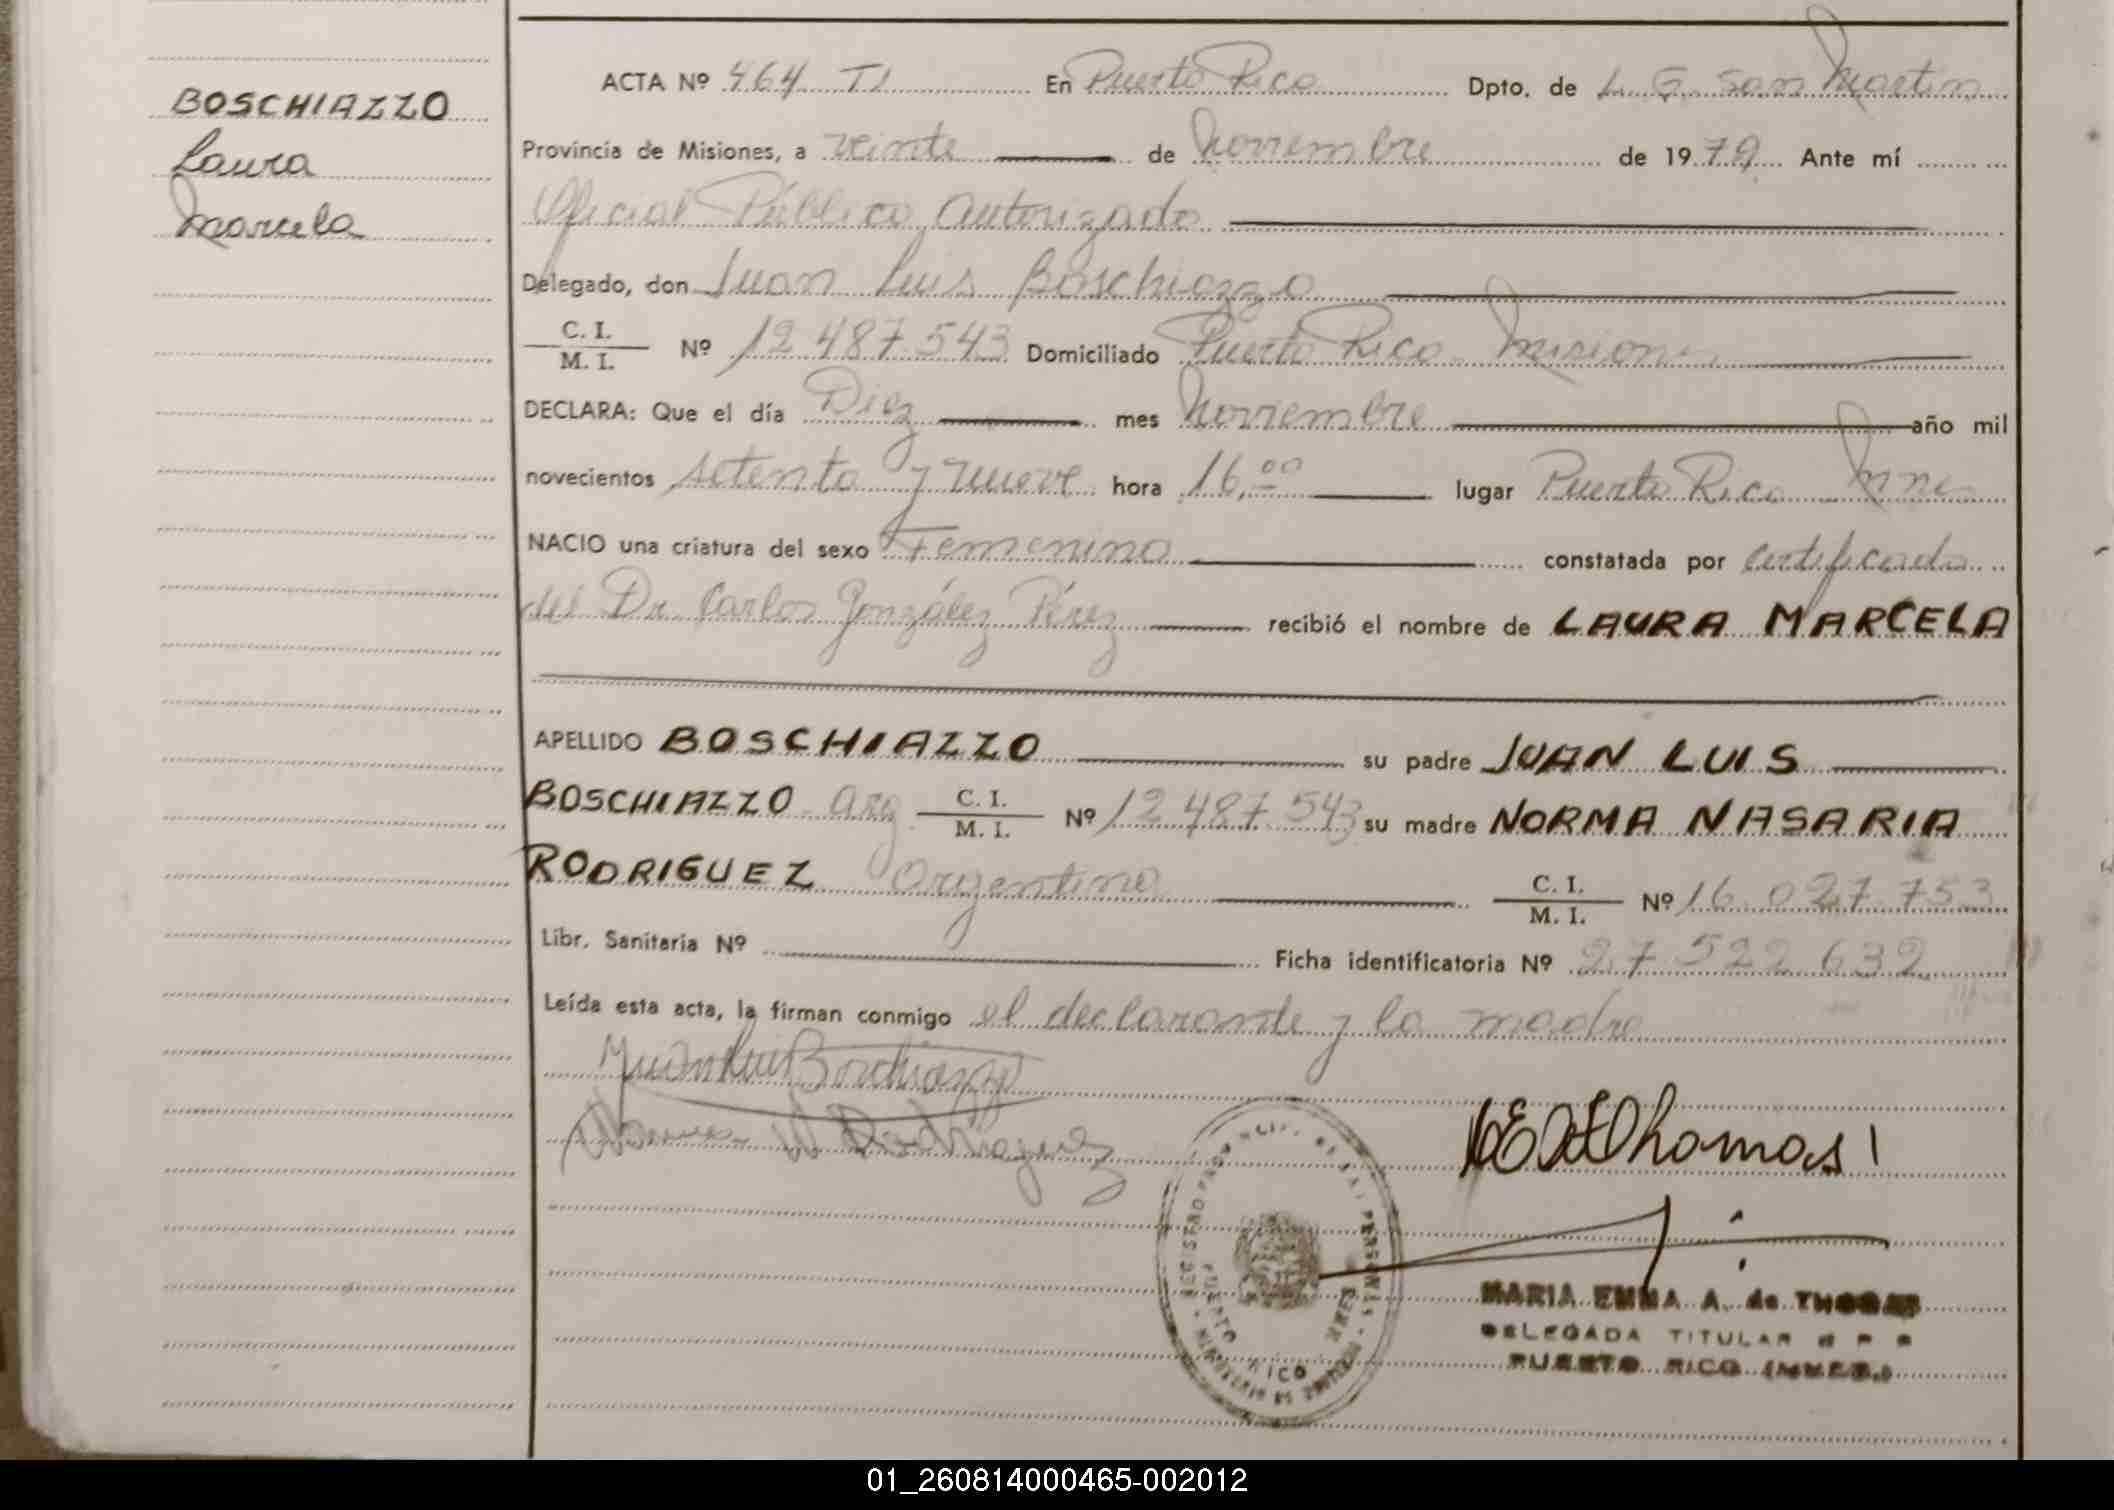 BOSCHIAZZO
Laura
Marcela
ACTA Nº 464 T1 En Puerto Rico Dpto. de L. G. San Martin
Provincia de Misiones, a veinte de Noviembre de 1979 Ante mí
Oficial Público Autorizado
Delegado, don Juan Luis Boschiazzo
C. I.
M. I. Nº 12 487 543 Domiciliado Puerto Rico Misiones
DECLARA: Que el día Diez mes Noviembre año mil
novecientos setenta y nueve hora 16,00 lugar Puerto Rico Mnes
NACIO una criatura del sexo Femenino constatada por certificado
del Dr. Carlos González Pérez recibió el nombre de LAURA MARCELA
APELLIDO BOSCHIAZZO su padre JUAN LUIS
BOSCHIAZZO Arg. C. I. M. I. Nº 12 487 543 su madre NORMA NASARIA
RODRIGUEZ Argentina C. I. M. I. Nº 16.027.753
Libr. Sanitaria Nº Ficha identificatoria Nº 27 522 632
Leída esta acta, la firman conmigo el declarante y la madre
Juan Luis Boschiazzo
Norma N Rodriguez
Thomas
MARIA EMMA A. de THOMAS
DELEGADA TITULAR
PUERTO RICO (MNES.)
01_260814000465-002012